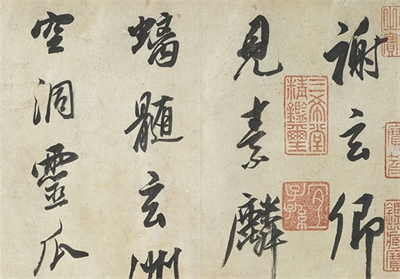 謝玄卿
見素麟
蟠髓玄洲
空洞靈瓜
三希堂精鑑璽
宜子孫